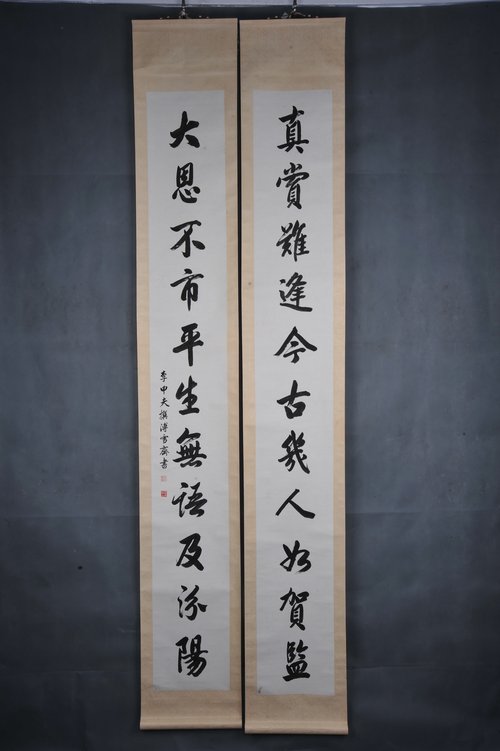 真賞難逢今古幾人如賀監
大恩不市平生無語及汾陽
李中夫撰溥雪齋書